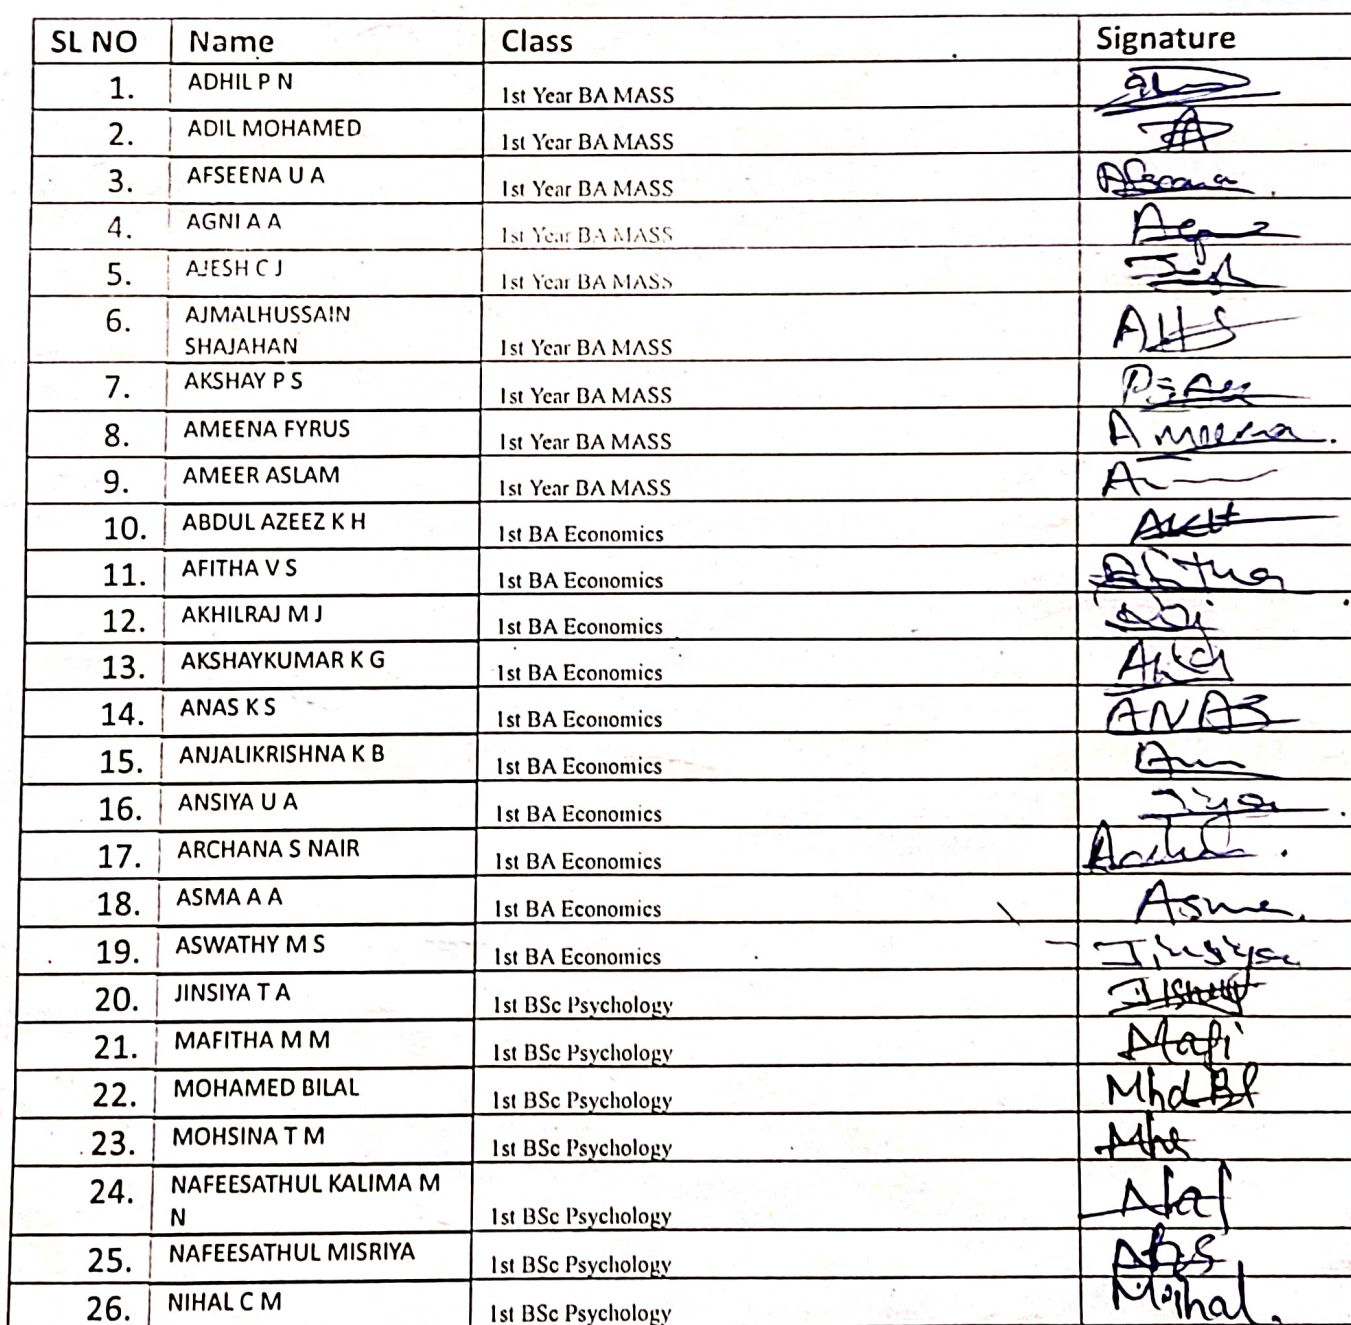 SL NO Name Class Signature
1. ADHIL P N 1st Year BA MASS
2. ADIL MOHAMED 1st Year BA MASS
3. AFSEENA U A 1st Year BA MASS
4. AGNI A A 1st Year BA MASS
5. AJESH C J 1st Year BA MASS
6. AJMALHUSSAIN
SHAJAHAN 1st Year BA MASS AHS
7. AKSHAY P S 1st Year BA MASS
8. AMEENA FYRUS 1st Year BA MASS Ameena.
9. AMEER ASLAM 1st Year BA MASS
10. ABDUL AZEEZ K H 1st BA Economics AKH
11. AFITHA V S 1st BA Economics Afitha
12. AKHILRAJ M J 1st BA Economics
13. AKSHAYKUMAR K G 1st BA Economics
14. ANAS K S 1st BA Economics ANAS
15. ANJALIKRISHNA K B 1st BA Economics
16. ANSIYA U A 1st BA Economics
17. ARCHANA S NAIR 1st BA Economics
18. ASMA A A 1st BA Economics Asma.
19. ASWATHY M S 1st BA Economics Jinsiya
20. JINSIYA T A 1st BSc Psychology
21. MAFITHA M M 1st BSc Psychology Mafi
22. MOHAMED BILAL 1st BSc Psychology Mhd Bl
23. MOHSINA T M 1st BSc Psychology
24. NAFEESATHUL KALIMA M
N 1st BSc Psychology Naf
25. NAFEESATHUL MISRIYA 1st BSc Psychology
26. NIHAL C M 1st BSc Psychology Nihal.